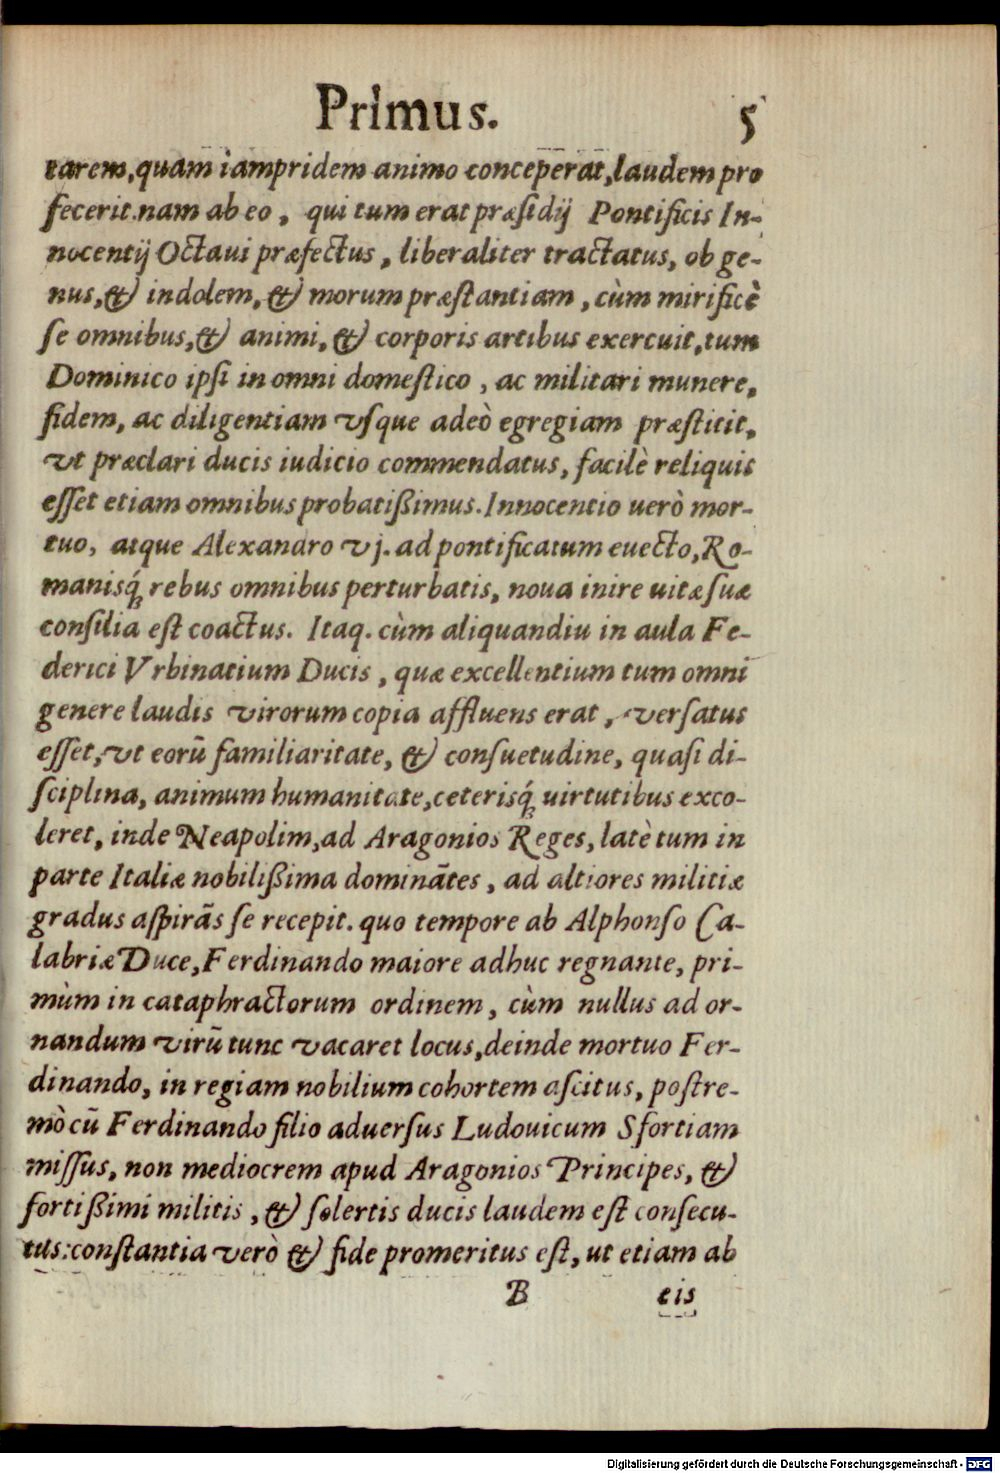 Primus. 5
tarem, quam iampridem animo conceperat, laudem pro
fecerit. nam ab eo, qui tum erat præsidij Pontificis In-
nocentij Octaui præfectus, liberaliter tractatus, ob ge-
nus, & indolem, & morum præstantiam, cùm mirificè
se omnibus, & animi, & corporis artibus exercuit, tum
Dominico ipsi in omni domestico, ac militari munere,
fidem, ac diligentiam vsque adeò egregiam præstitit,
vt præclari ducis iudicio commendatus, facilè reliquis
esset etiam omnibus probatißimus. Innocentio uerò mor-
tuo, atque Alexandro vj. ad pontificatum euecto, Ro-
manisq́; rebus omnibus perturbatis, noua inire uitæ suæ
consilia est coactus. Itaq. cùm aliquandiu in aula Fe-
derici Vrbinatium Ducis, quæ excellentium tum omni
genere laudis virorum copia affluens erat, versatus
esset, vt eorũ familiaritate, & consuetudine, quasi di-
sciplina, animum humanitate, ceterisq́; uirtutibus exco-
leret, inde Neapolim, ad Aragonios Reges, latè tum in
parte Italiæ nobilißima dominãtes, ad altiores militiæ
gradus aspirãs se recepit. quo tempore ab Alphonso Ca-
labriæ Duce, Ferdinando maiore adhuc regnante, pri-
mùm in cataphractorum ordinem, cùm nullus ad or-
nandum virũ tunc vacaret locus, deinde mortuo Fer-
dinando, in regiam nobilium cohortem ascitus, postre-
mò cũ Ferdinando filio aduersus Ludouicum Sfortiam
missus, non mediocrem apud Aragonios Principes, &
fortißimi militis, & solertis ducis laudem est consecu-
tus: constantia verò & fide promeritus est, ut etiam ab
B eis
Digitalisierung gefördert durch die Deutsche Forschungsgemeinschaft - DFG